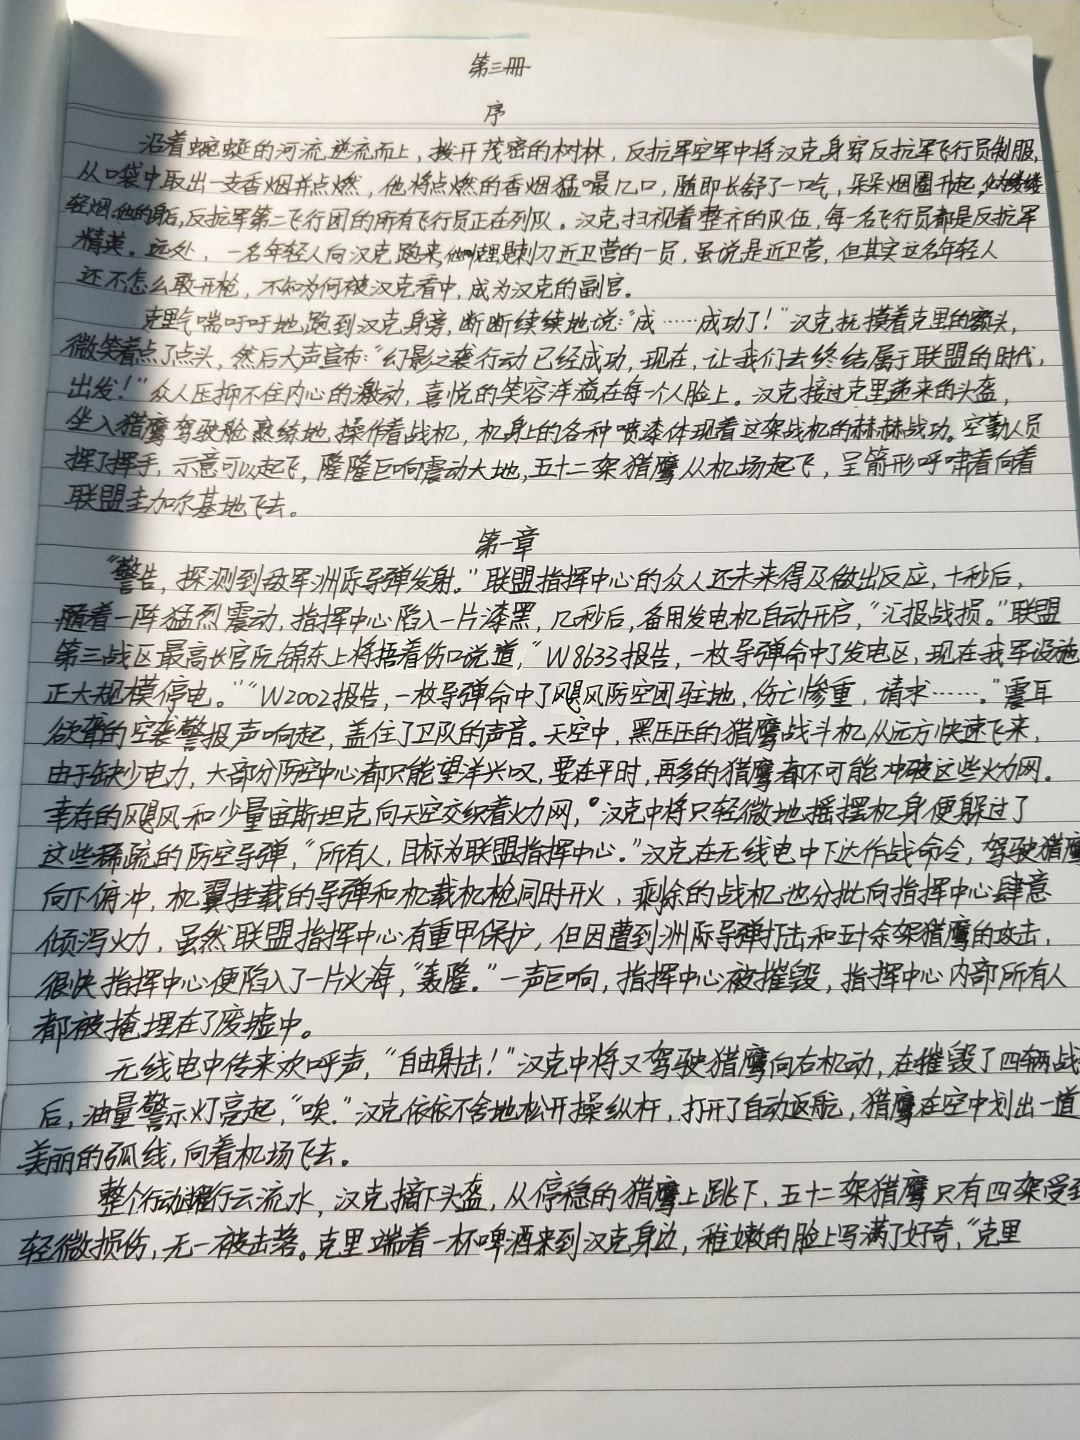 第三册
序
沿着蜿蜒的河流逆流而上，拨开茂密的树林，反抗军空军中将汉克身穿反抗军飞行员制服，
从口袋中取出一支香烟并点燃，他将点燃的香烟猛嘬几口，随即长舒了一口气，朵朵烟圈升起，
轻烟，他的身后，反抗军第二飞行团的所有飞行员正在列队。汉克扫视着整齐的队伍，每一名飞行员都是反抗军
精英。远处，一名年轻人向汉克跑来，他叫克里，是刺刀近卫营的一员，虽说是近卫营，但其实这名年轻人
还不怎么敢开枪，不知为何被汉克看中，成为汉克的副官。
克里气喘吁吁地跑到汉克身旁，断断续续地说：“成……成功了！”汉克抚摸着克里的额头，
微笑着点了点头，然后大声宣布：“幻影之袭行动已经成功，现在，让我们去终结属于联盟的时代，
出发！”众人压抑不住内心的激动，喜悦的笑容洋溢在每一个人脸上。汉克接过克里递来的头盔，
坐入猎鹰驾驶舱熟练地操作着战机，机身上的各种喷漆体现着这架战机的赫赫战功。空勤人员
挥了挥手，示意可以起飞，隆隆巨响震动大地，五十二架猎鹰从机场起飞，呈箭形呼啸着向着
联盟圭加尔基地飞去。
第一章
“警告，探测到敌军洲际导弹发射。”联盟指挥中心的众人还未来得及做出反应，十秒后，
随着一阵猛烈震动，指挥中心陷入一片漆黑，几秒后，备用发电机自动开启，“汇报战损。”联盟
第三战区最高长官阮锦东上将捂着伤口说道，“W8633报告，一枚导弹命中了发电区，现在我军设施
正大规模停电。”“W2002报告，一枚导弹命中了飓风防空团驻地，伤亡惨重，请求……。”震耳
欲聋的空袭警报声响起，盖住了卫队的声音。天空中，黑压压的猎鹰战斗机从远方快速飞来，
由于缺少电力，大部分防空中心都只能望洋兴叹，要在平时，再多的猎鹰都不可能冲破这些火力网。
幸存的飓风和少量宙斯坦克向天空交织着火力网，汉克中将只轻微地摇摆机身便躲过了
这些稀疏的防空导弹，“所有人，目标为联盟指挥中心。”汉克在无线电中下达作战命令，驾驶猎鹰
向下俯冲，机翼挂载的导弹和机载机枪同时开火，剩余的战机也分批向指挥中心肆意
倾泻火力，虽然联盟指挥中心有重甲保护，但因遭到洲际导弹打击和五十余架猎鹰的攻击，
很快指挥中心便陷入了一片火海，“轰隆。”一声巨响，指挥中心被摧毁，指挥中心内部所有人
都被掩埋在了废墟中。
无线电中传来欢呼声，“自由射击！”汉克中将又驾驶猎鹰向右机动，在摧毁了四辆战
后，油量警示灯亮起，“唉。”汉克依依不舍地松开操纵杆，打开了自动返航，猎鹰在空中划出一道
美丽的弧线，向着机场飞去。
整个行动进行云流水，汉克摘下头盔，从停稳的猎鹰上跳下，五十二架猎鹰只有四架受到
轻微损伤，无一被击落。克里端着一杯啤酒来到汉克身边，稚嫩的脸上写满了好奇，“克里